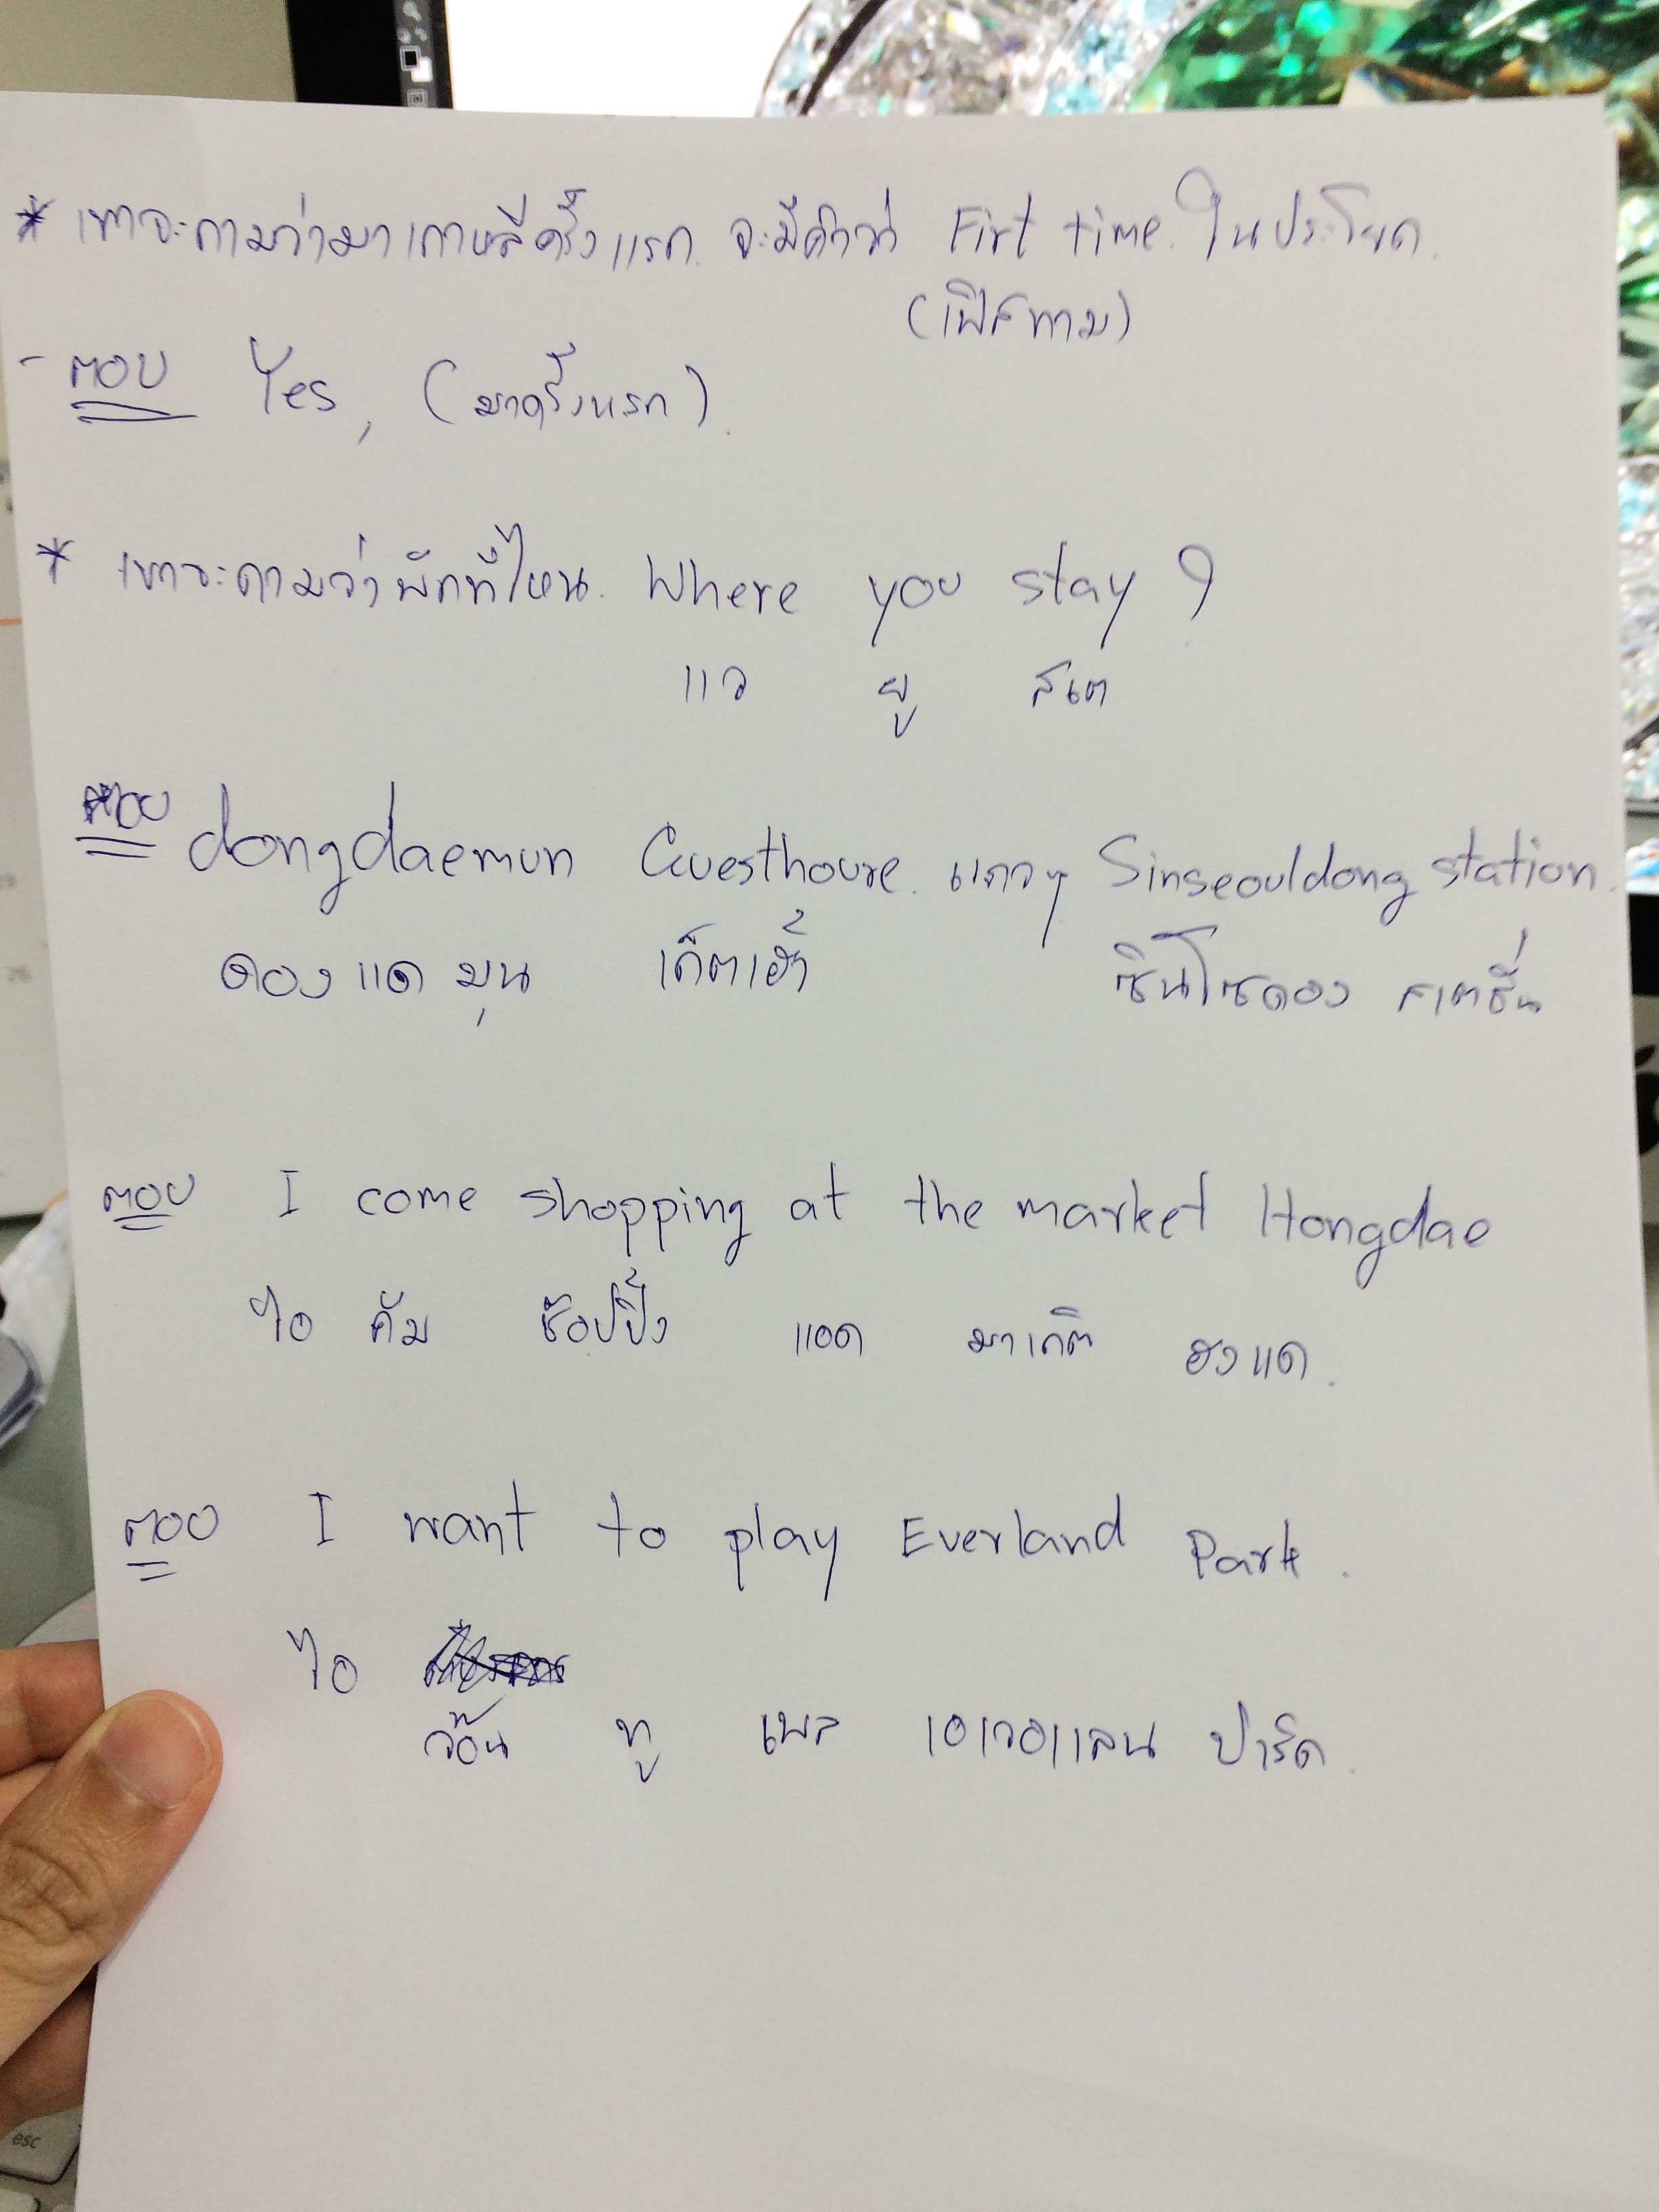 * เขาจะถามว่ามาเกาหลีครั้งแรก. จะมีคำว่า First time. ในประโยค.
(เฟิสทาม)
- ตอบ Yes, (มาครั้งแรก).
* เขาจะถามว่าพักที่ไหน. Where you stay ?
แว ยู สเต
ตอบ dongdaemun Guesthouse. แถวๆ Sinseouldong station.
ดองแดมุน เก็ตเฮ้า ซินโซดอง สเตชั่น
ตอบ I come shopping at the market Hongdae
ไอ คัม ช้อปปิ้ง แอด มาเก็ต ฮงแด.
ตอบ I want to play Everland Park.
ไอ
ว้อน ทู เพล เอเวอแลน ปาร์ค.
esc